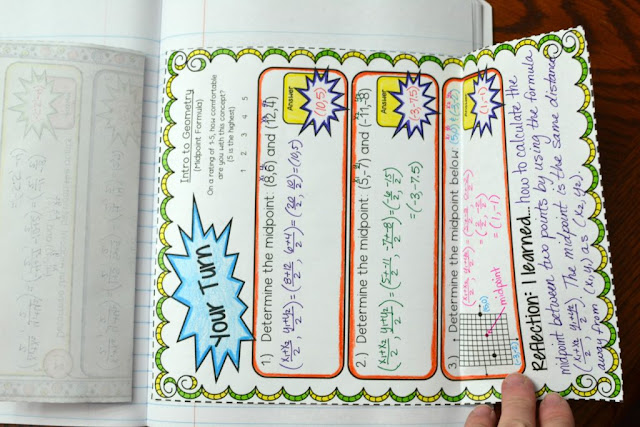 Your Turn
Intro to Geometry
(Midpoint Formula)
On a rating of 1-5, how comfortable
are you with this concept?
(5 is the highest)
1 2 3 4 5
1) Determine the midpoint: (8,6) and (12,4)
(x₁+x₂/2, y₁+y₂/2) = (8+12/2, 6+4/2) = (20/2, 10/2) = (10,5)
Answer
(10,5)
2) Determine the midpoint: (5,-7) and (-11,-8)
(x₁+x₂/2, y₁+y₂/2) = (5+-11/2, -7+-8/2) = (-6/2, -15/2)
= (-3,-7.5)
Answer
(-3,-7.5)
3) Determine the midpoint below.
midpoint
= (1,-1)
Answer
(1,-1)
Reflection: I learned... how to calculate the
midpoint between two points by using the formula
(x₁+x₂/2, y₁+y₂/2). The midpoint is the same distance
away from (x₁,y₁) as (x₂,y₂).